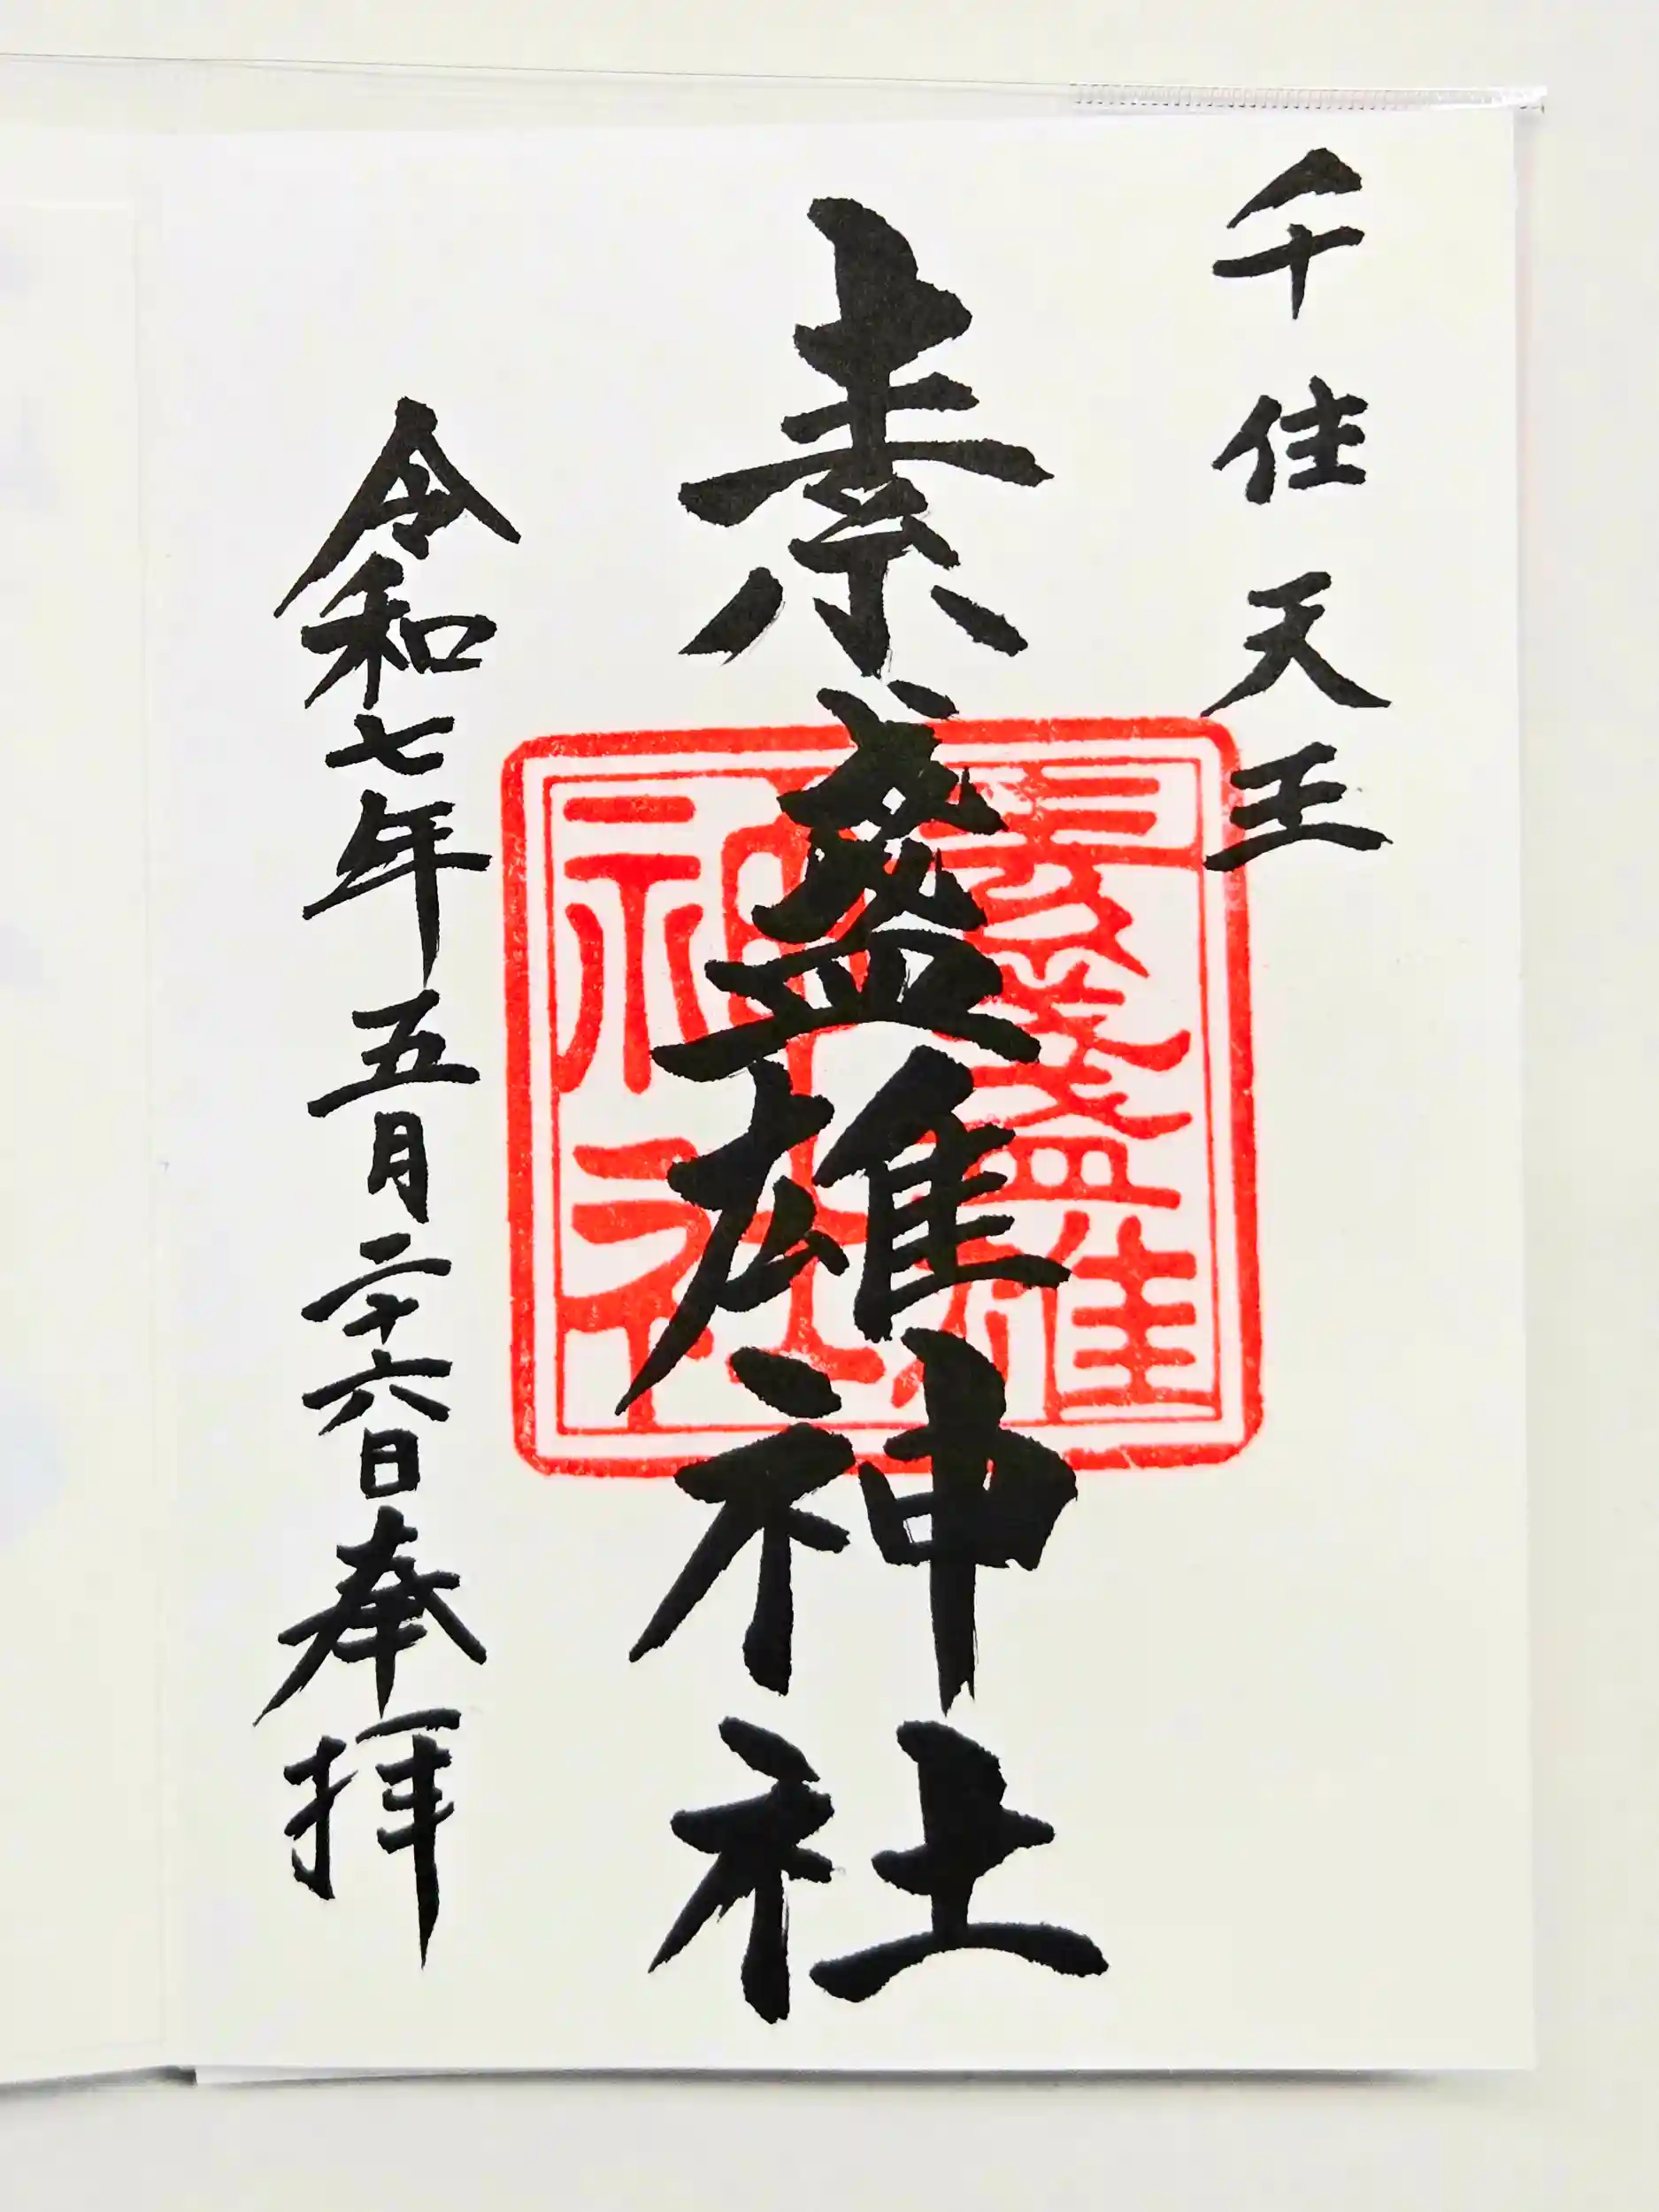 千住天王
素盞雄神社
素盞雄
神社
令和七年五月二十六日奉拝